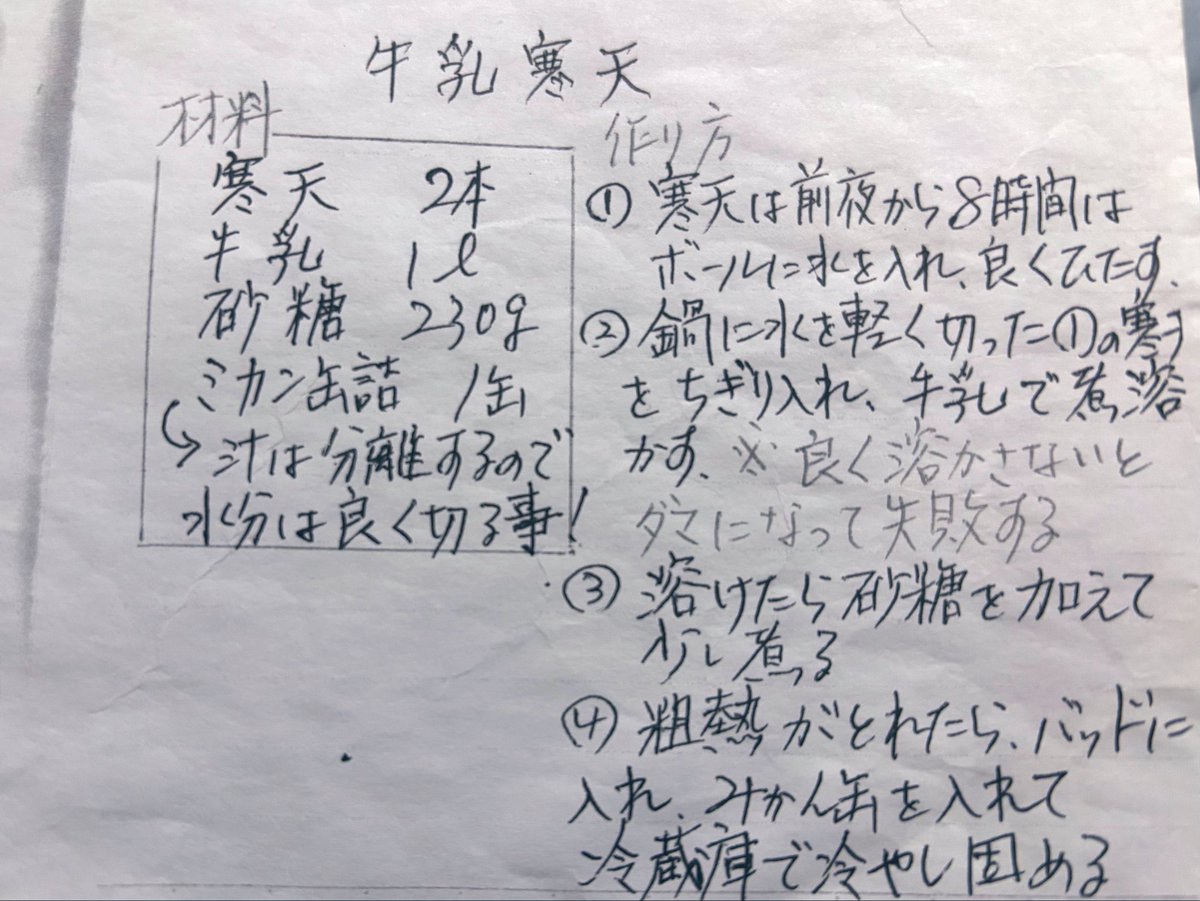 牛乳寒天
材料
寒天 2本
牛乳 1ℓ
砂糖 230g
ミカン缶詰 1缶
↪汁は分離するので
水分は良く切る事!
作り方
① 寒天は前夜から8時間は
ボールに水を入れ、良くひたす、
② 鍋に水を軽く切った①の寒天
をちぎり入れ、牛乳で煮溶
かす、※良く溶かさないと
ダマになって失敗する
③ 溶けたら砂糖を加えて
少し煮る
④ 粗熱がとれたら、バッドに
入れ、みかん缶を入れて
冷蔵庫で冷やし固める